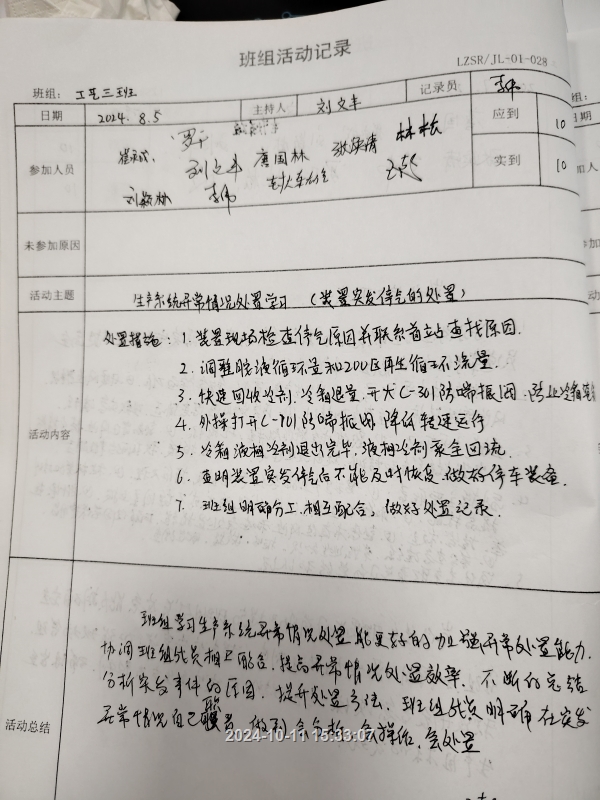 班组活动记录
LZSR/JL-01-028
班组： 工艺三班
日期 2024.8.5 主持人 刘文丰 记录员 李伟
参加人员 应到 10
罗 林松
刘文丰 唐国林 实到 10
李伟
未参加原因
活动主题 生产系统异常情况处置学习 （装置突发停气的处置）
活动内容
处置措施： 1. 装置现场检查停气原因并联系首站查找原因.
2. 调整脱液循环量和200区再生循环流量.
3. 快速回收冷剂、冷箱退量、开大C-301防喘振阀、防止冷箱
4. 外操打开C-701防喘振阀 降低转速运行
5. 冷箱液相冷剂退出完毕, 液相冷剂泵全回流.
6. 查明装置突发停气后不能及时恢复, 做好停车装备.
7. 班组明确分工, 相互配合, 做好处置记录.
活动总结
班组学习生产系统异常情况处置能更好的加强异常处置能力.
协调班组成员相互配合, 提高异常情况处置效率. 不断的总结
分析突发事件的原因, 提升处置方法. 班组成员明确在突发
异常情况自己职责, 做到会分析、会操作、会处置
2024-10-11 15:33:07